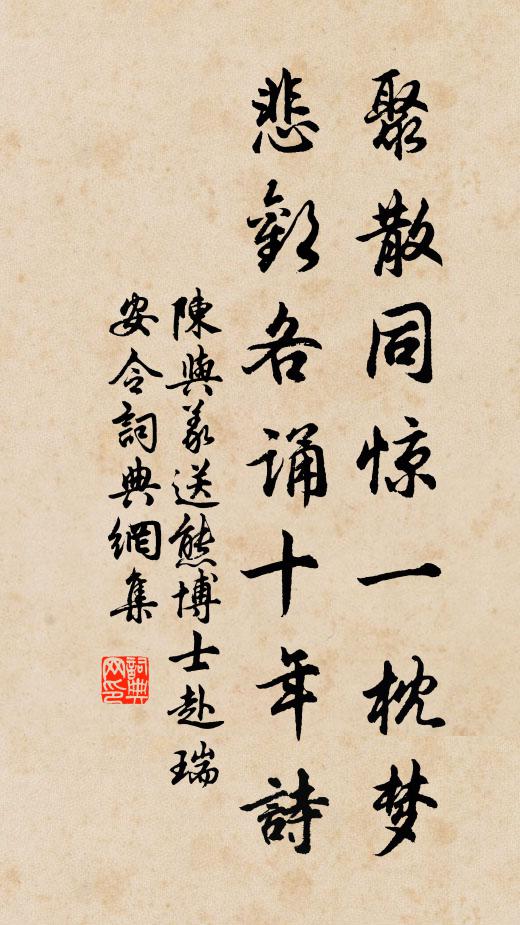 聚散同惊一枕梦
悲歡各诵十年詩
陳與義送熊博士赴瑞
安令詞典網集
詞典网印